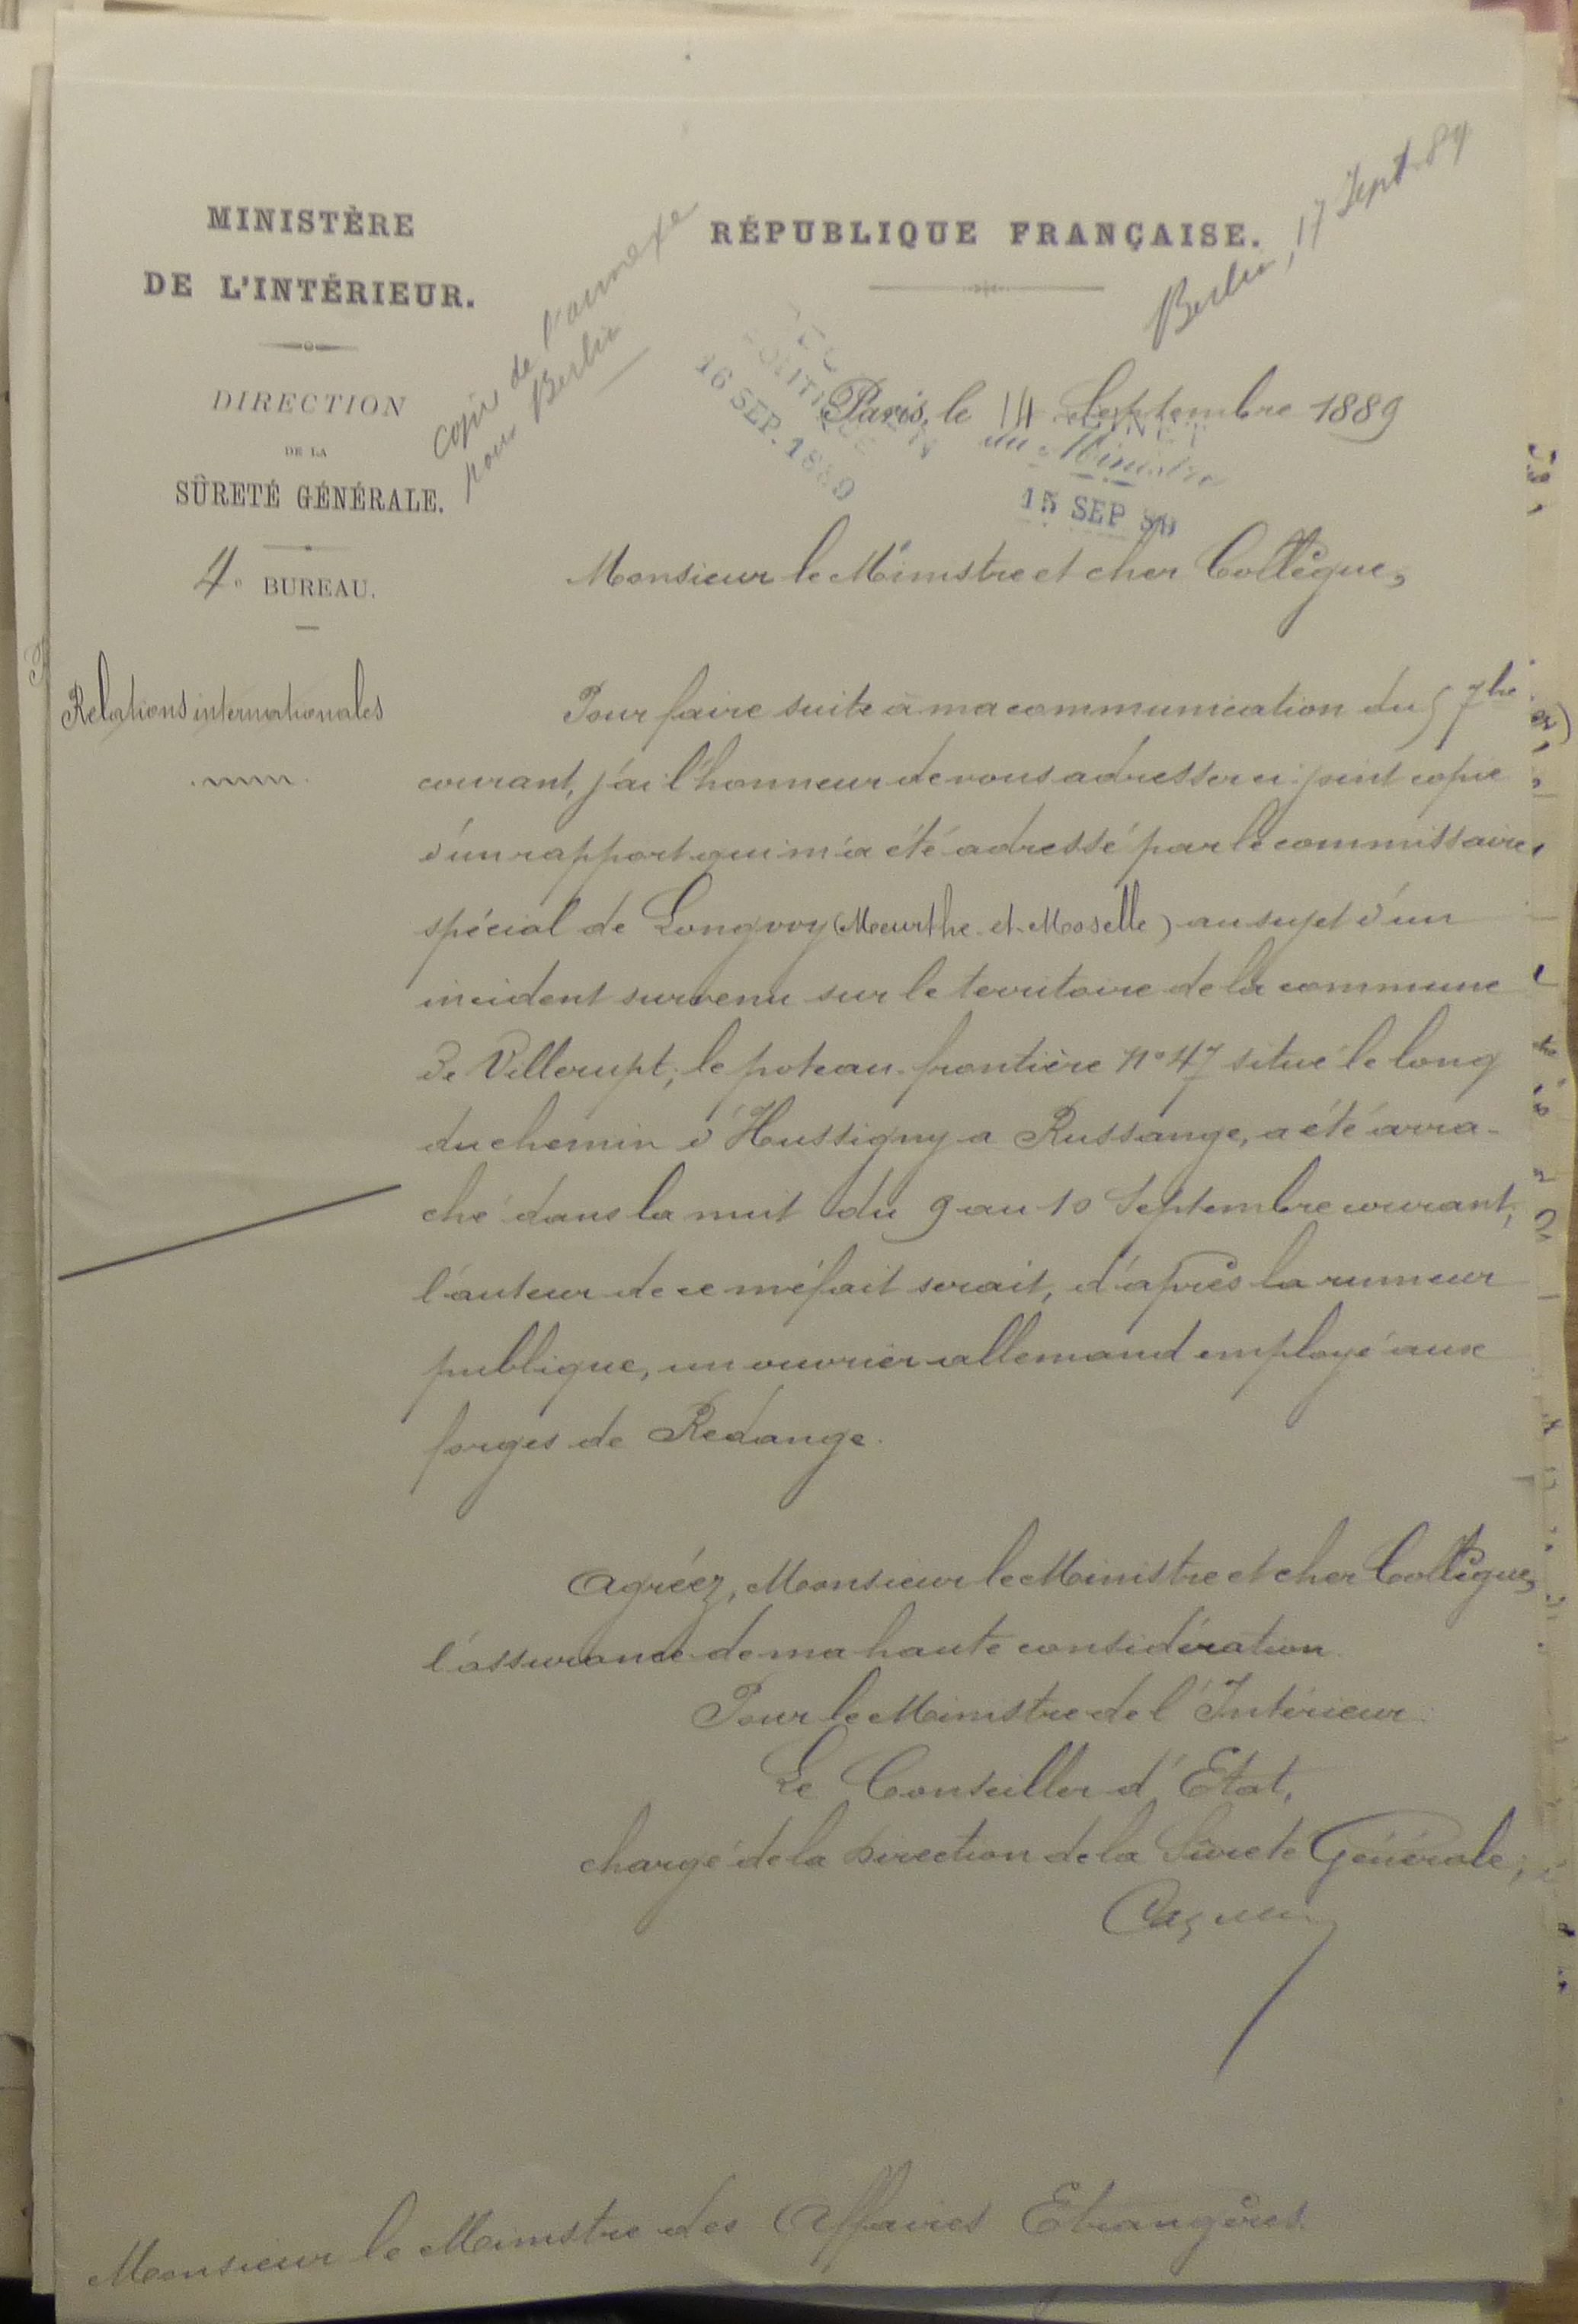 MINISTÈRE
DE L'INTÉRIEUR.
DIRECTION
DE LA
SÛRETÉ GÉNÉRALE.
4e BUREAU.
Relations internationales
copie de l'annexe
pour Berlin
RÉPUBLIQUE FRANÇAISE.
Berlin, 17 Sept. 89
16 SEP. 1889
Paris, le 14 Septembre 1889
du Ministre
15 SEP 89
Monsieur le Ministre et cher Collègue,
Pour faire suite à ma communication du 5 7bre
courant, j'ai l'honneur de vous adresser ci-joint copie
d'un rapport qui m'a été adressé par le commissaire
spécial de Longwy (Meurthe-et-Moselle) au sujet d'un
incident survenu sur le territoire de la commune
de Villerupt; le poteau-frontière no 47 situé le long
du chemin d'Hussigny a Russange, a été arra-
ché dans la nuit du 9 au 10 Septembre courant,
l'auteur de ce méfait serait, d'après la rumeur
publique, un ouvrier allemand employé aux
forges de Redange.
Agréez, Monsieur le Ministre et cher Collègue,
l'assurance de ma haute considération
Pour le Ministre de l'Intérieur
Le Conseiller d'Etat,
chargé de la Direction de la Sûreté Générale,
Monsieur le Ministre des Affaires Etrangères.